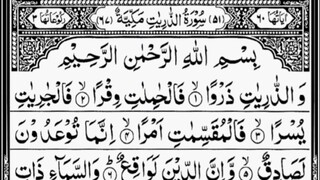 اٰيَاتُهَا ٦٠ (٥١) سُوْرَةُ الذّٰرِيٰتِ مَكِّيَّةٌ (٦٧) رُكُوْعَاتُهَا ٣
بِسْمِ اللّٰهِ الرَّحْمٰنِ الرَّحِيْمِ
وَ الذّٰرِيٰتِ ذَرْوًا ۝١ فَالْحٰمِلٰتِ وِقْرًا ۝٢ فَالْجٰرِيٰتِ
يُسْرًا ۝٣ فَالْمُقَسِّمٰتِ اَمْرًا ۝٤ اِنَّمَا تُوْعَدُوْنَ
لَصَادِقٌ ۝٥ وَّ اِنَّ الدِّيْنَ لَوَاقِعٌ ۝٦ وَالسَّمَآءِ ذَاتِ